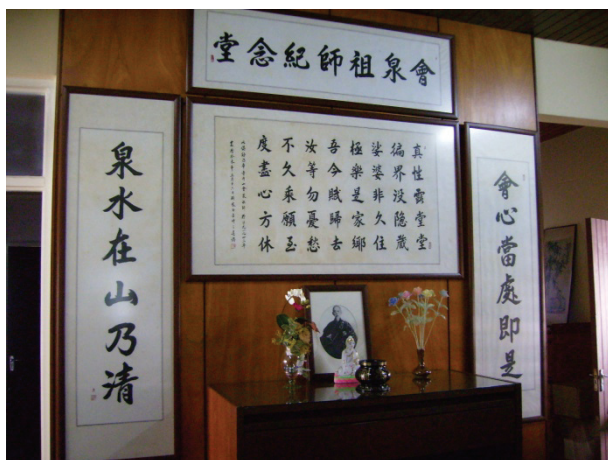 會泉祖師紀念堂
會心當處即是
真性露堂堂
徧界没隱藏
娑婆非久住
極樂是家鄉
吾今賦歸去
汝等勿憂愁
不久乘願至
度盡心方休
泉水在山乃清